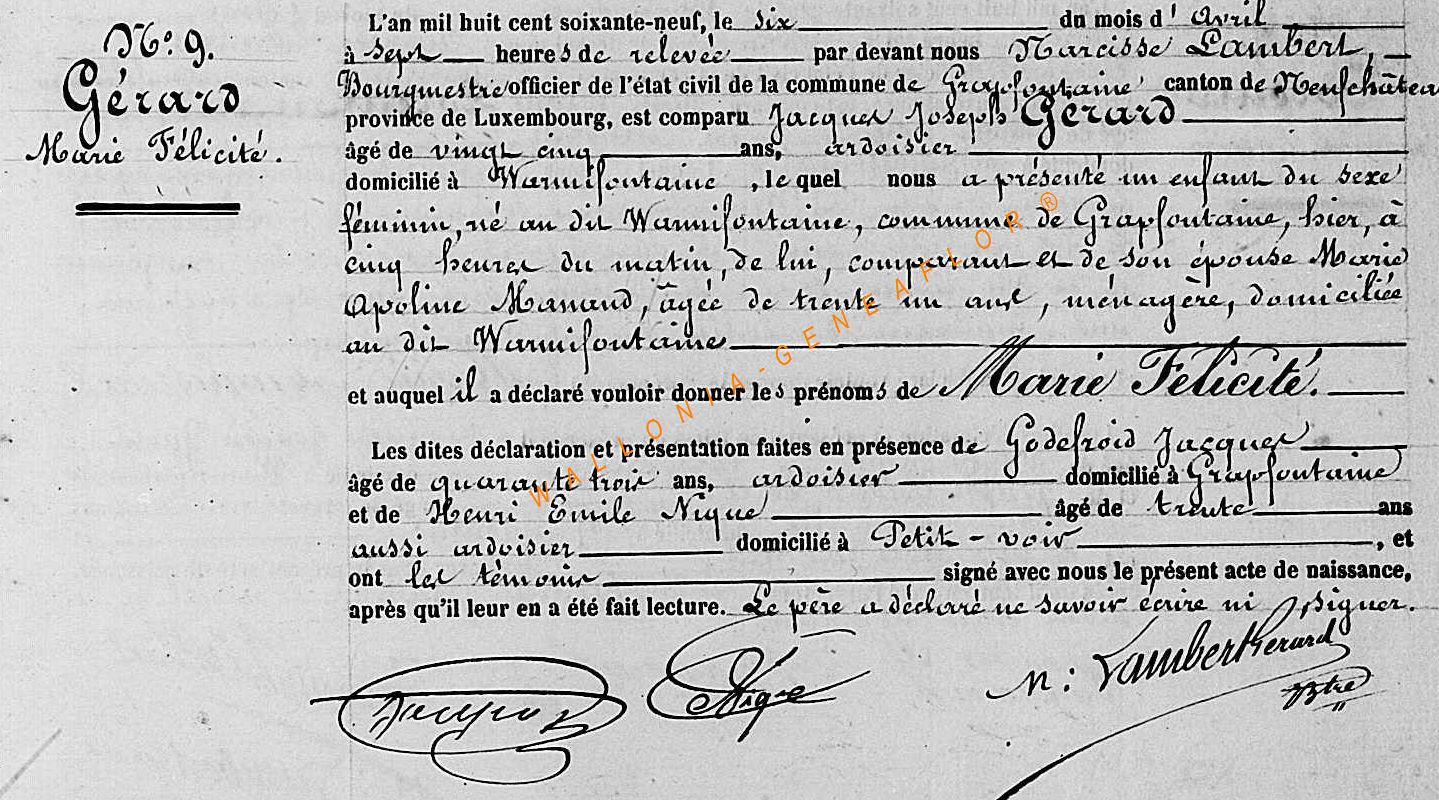 Nº. 9.
Gérard
Marie Félicité.
L'an mil huit cent soixante-neuf, le six du mois d'Avril
à sept heures de relevée par devant nous Narcisse Lambert,
Bourgmestre officier de l'état civil de la commune de Grapfontaine canton de Neufchâteau
province de Luxembourg, est comparu Jacques Joseph Gérard
âgé de vingt cinq ans, ardoisier
domicilié à Warmifontaine, le quel nous a présenté un enfant du sexe
féminin, né au dit Warmifontaine, commune de Grapfontaine, hier, à
cinq heures du matin, de lui, comparant et de son épouse Marie
Apoline Manand, âgée de trente un ans, ménagère, domiciliée
au dit Warmifontaine
et auquel il a déclaré vouloir donner les prénoms de Marie Félicité.
Les dites déclaration et présentation faites en présence de Godefroid Jacques
âgé de quarante trois ans, ardoisier domicilié à Grapfontaine
et de Henri Emile Nique âgé de trente ans
aussi ardoisier domicilié à Petit-voir, et
ont les témoins signé avec nous le présent acte de naissance,
après qu'il leur en a été fait lecture. Le père a déclaré ne savoir écrire ni signer.
Jacques Nique N: Lambert Gérard
Btre
WALLONIA-GENEAFLOR ®